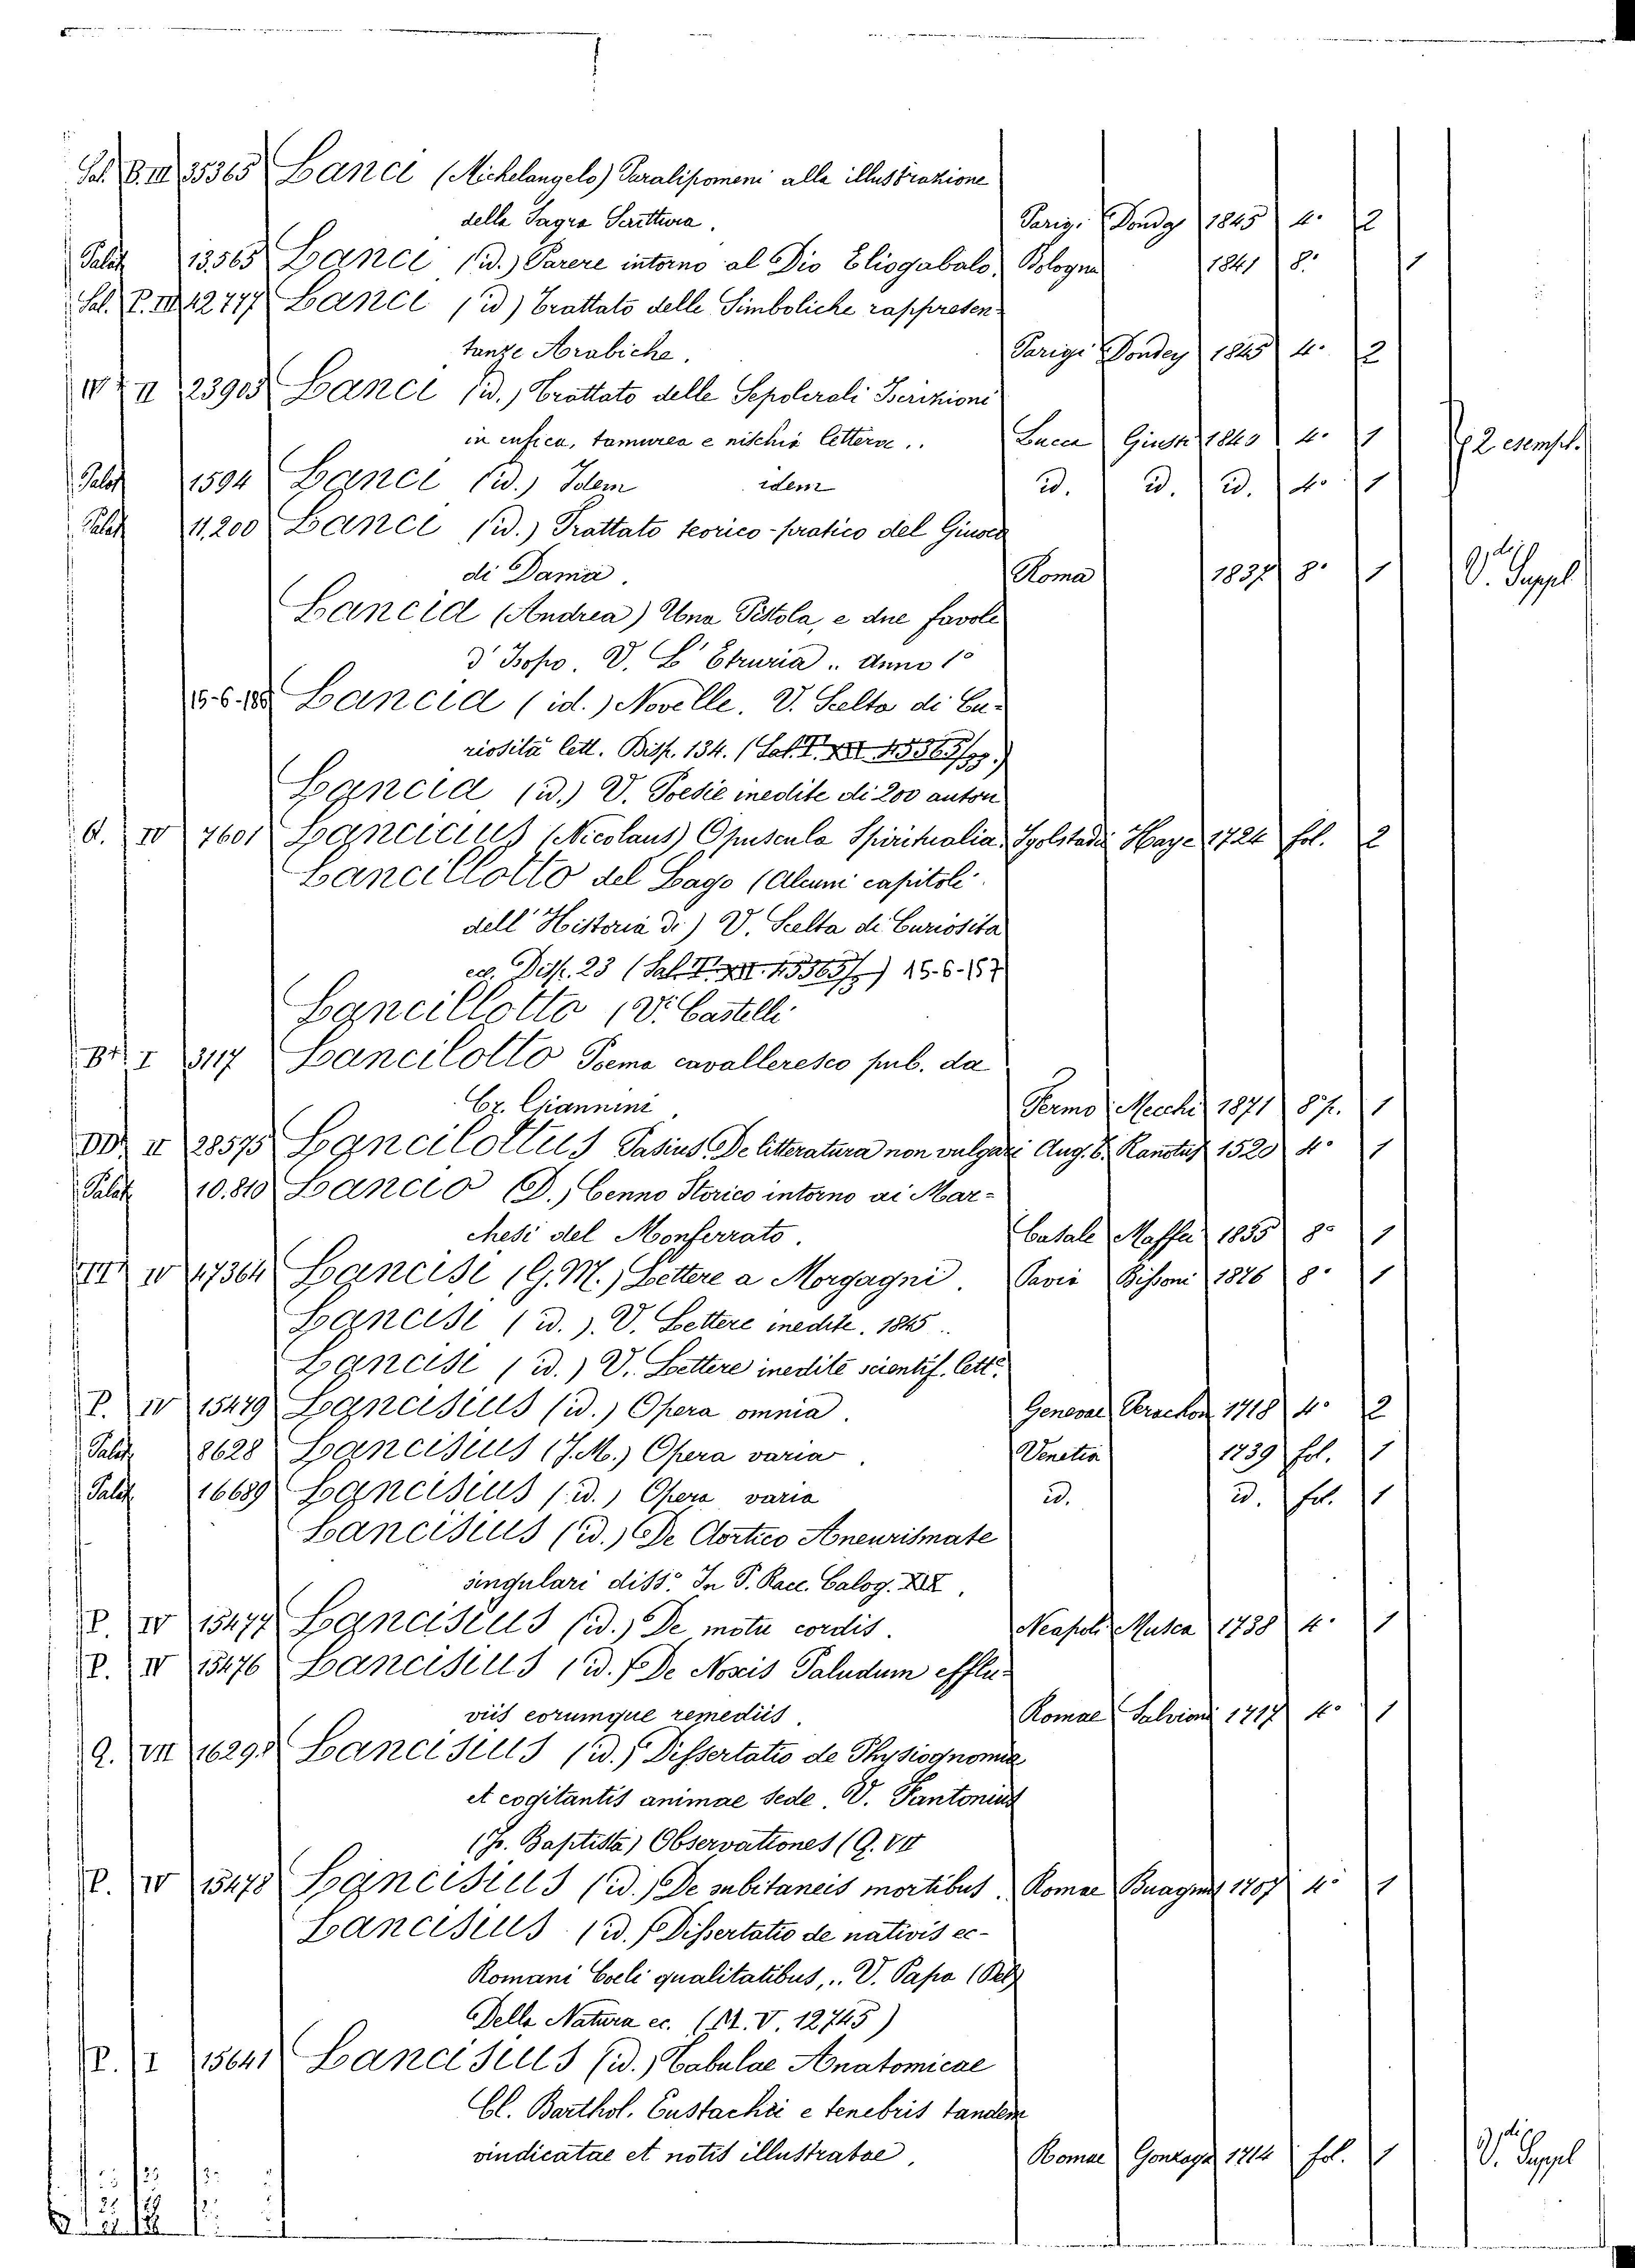 Sal. B. III 35365 Lanci (Michelangelo) Paralipomeni alla illustrazione
della Sagra Scrittura. Parig. Dondey 1845 4. 2
Palat 13,565 Lanci (id.) Parere intorno al Dio Eliogabalo. Bologna 1841 8. 1
Sal. P. 42777 Lanci (id) Trattato delle Simboliche rappresen-
tanze Arabiche. Parigi Dondey 1845 4. 2
II 23905 Lanci (id.) Trattato delle Sepolcrali Iscrizioni
in cufica, tamurea e nischia lettera.. Lucca Giusti 1840 4. 1 2 esempl.
Palat 1594 Lanci (id.) Idem idem id. id. id. 4o 1
Palat 11,200 Lanci (id.) Trattato teorico-pratico del Giuoco
di Dama. Roma 1837 8o 1 V. Suppl
Lancia (Andrea) Una Pistola, e due favole
d'Isopo. V. L'Etruria.. Anno 1o
15.6. Lancia (id.) Novelle. V. Scelta di Cu-
riosità lett. Disp. 134. (Sal.
Lancia (id.) V. Poesie inedite di 200 autori
IV 7601 Lancicius (Nicolaus) Opuscula Spiritualia. Ingolstadii Haye 1724 fol. 2
Lancillotto del Lago (Alcuni capitoli
dell'Historia di) V. Scelta di Curiosita
ec. Disp. 23 (Sal. 15365/) 15-6-157
Lancillotto (V. Castelli
I 3117 Lancilotto Poema cavalleresco pub. da
Cr. Giannini, Fermo Mecchi 1871 8o p. 1
II 28575 Lancilottus Pasius De litteratura non vulgari Aug. T. 1520 4o 1
Palat 10.810 Lancio (D.) Cenno Storico intorno ai Mar-
chesi del Monferrato. Casale Maffei 1835 8o 1
IV 47364 Lancisi (G. M.) Lettere a Morgagni. Pavia Bizzoni 1876 8o 1
Lancisi (id.). V. Lettere inedite. 1845..
Lancisi (id.) V. Lettere inedite scientif. lett.
P. IV 15479 Lancisius (id.) Opera omnia. Genevae 1718 4o 2
Palat 8628 Lancisius (J. M.) Opera varia. Venetia 1739 fol. 1
Palat 16689 Lancisius (id.) Opera varia id. id. fol. 1
Lancisius (id.) De Aortico Aneurismate
singulari diss. In S. Racc. Calog. XIX.
P. IV 15477 Lancisius (id.) De motu cordis. Neapoli Musca 1738 4. 1
P. IV 15476 Lancisius (id.) De Noxis Paludum efflu-
viis eorumque remediis. Romae Salvioni 1717 4o 1
Q. VII 16298 Lancisius (id.) Dissertatio de Physiognomia
et cogitantis animae sede. V. Fantonius
(Jo. Baptista) Observationes (Q. VII
P. IV 15478 Lancisius (id.) De subitaneis mortibus. Romae Buagni 1707 4o 1
Lancisius (id.) Dissertatio de nativis ec-
Romani Coeli qualitatibus,.. V. Papa (
Della Natura ec. (M. V. 12745)
P. I 15641 Lancisius (id.) Tabulae Anatomicae
Cl. Barthol. Eustachii e tenebris tandem
vindicatae et notis illustratae, Romae Gonzaga 1714 fol. 1 V. Suppl